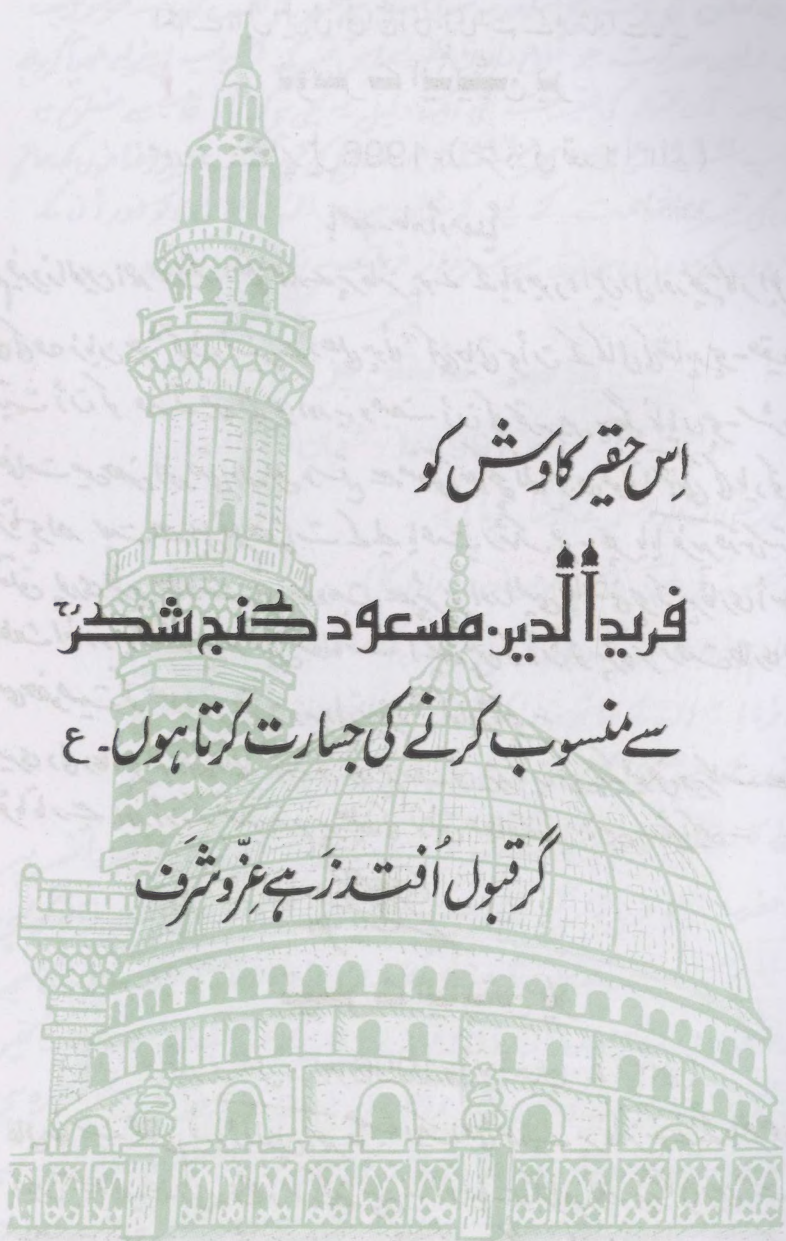 اِس حقیر کاوش کو
فریدالدین مسعود گنج شکرؒ
سے منسوب کرنے کی جسارت کرتا ہوں۔ ع
گر قبول اُفتد زَہے عِزّ و شَرَف